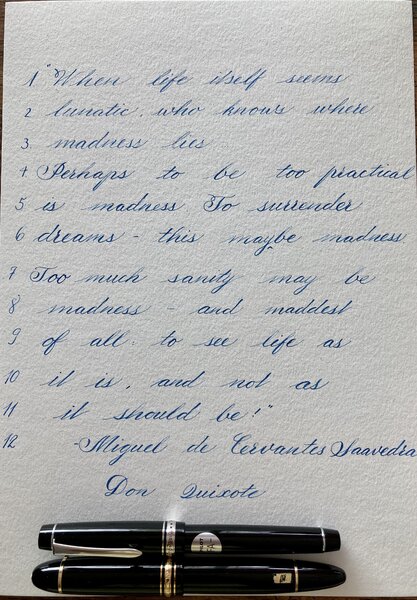 1 "When life itself seems
2 lunatic, who knows where
3 madness lies
4 Perhaps to be too practical
5 is madness To surrender
6 dreams - this maybe madness
7 Too much sanity may be
8 madness - and maddest
9 of all: to see life as
10 it is, and not as
11 it should be!"
12 -Miguel de Cervantes Saavedra
Don Quixote